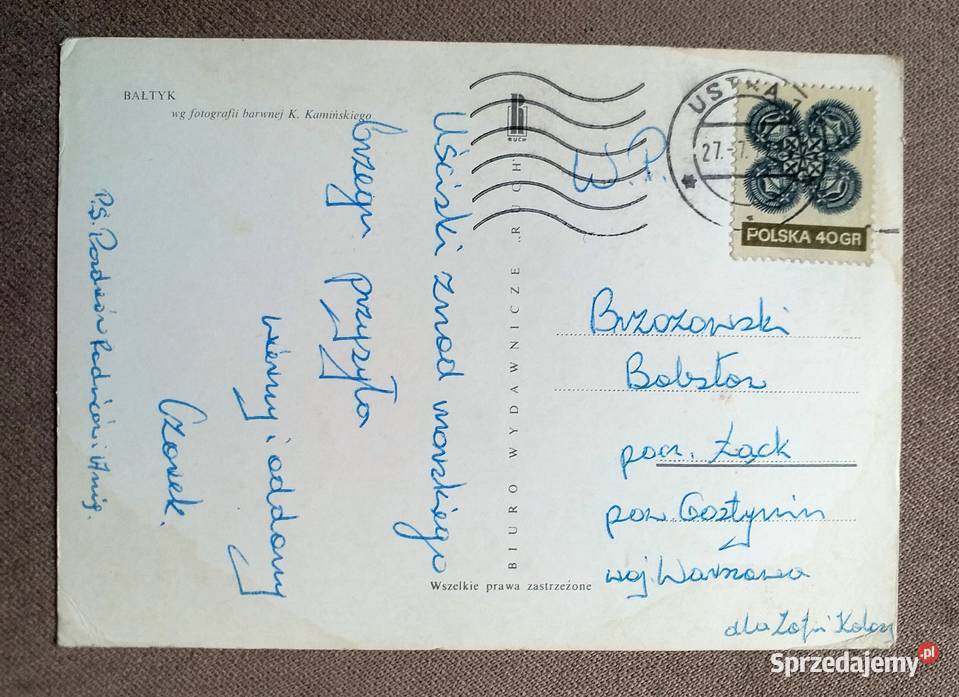 BAŁTYK
wg fotografii barwnej K. Kamińskiego
Uściski znad morskiego
brzegu przysyła
wierny i oddany
Czesek.
P.S. Pozdrów Rodziców i
BIURO WYDAWNICZE „RUCH"
RUCH
Wszelkie prawa zastrzeżone
USTKA 1
27.-7.
POLSKA 40 GR
W.P.
Brzozowski
pocz. Łąck
pow. Gostynin
woj. Warszawa
dla Zofii
Sprzedajemy.pl